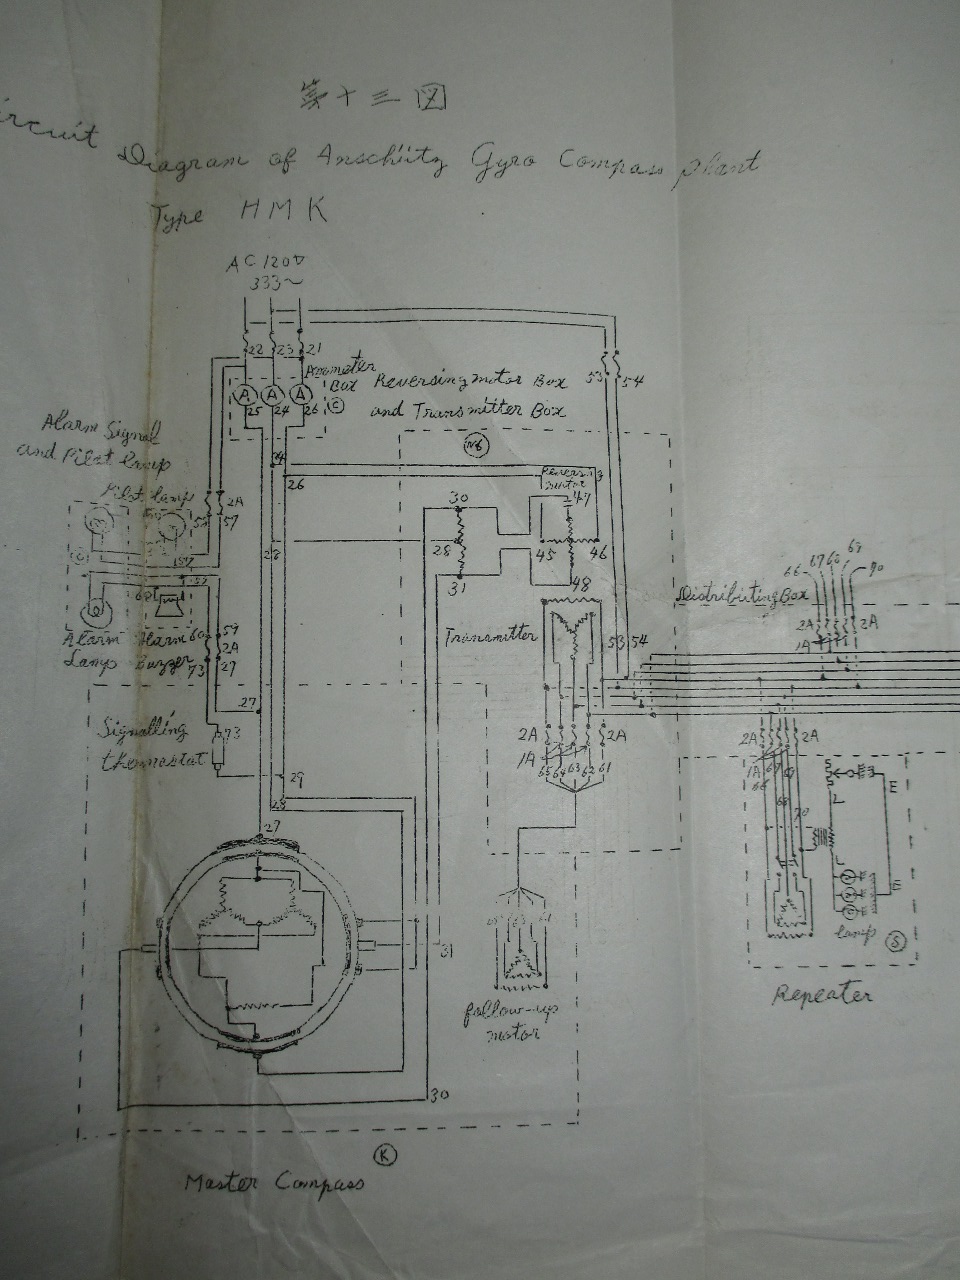 第十三図
Circuit Diagram of Anschütz Gyro Compass plant
Type HMK
AC 120V
333~
22 23 21
Ammeter
Box
A A A
25 24 26
C
Reversing motor Box
and Transmitter Box
53 54
Alarm Signal
and Pilot lamp
Pilot lamp
2A
57
24
26
N6
Revers.
motor
47
30
28
31
45 46
48
23
Transmitter
53 54
Alarm
Lamp
Alarm
Buzzer
60 59
2A
73 27
27
Signalling
thermostat
73
29
28
27
2A 2A
1A
65 64 63 62 61
Distributing Box
66 67 68 69 70
2A 2A
1A
2A 2A
1A
66 67 69
68
70
L
L
E
E
lamp
S
Repeater
31
follow-up
motor
30
K
Master Compass